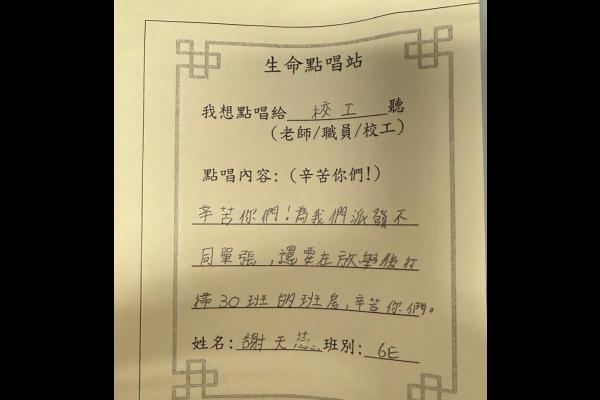 生命點唱站
我想點唱給校工聽
(老師/職員/校工)
點唱內容:(辛苦你們!)
辛苦你們!為我們派發不
同單張,還要在放學後打
掃30班的班房,辛苦你們。
姓名:謝天蕊班別:6E